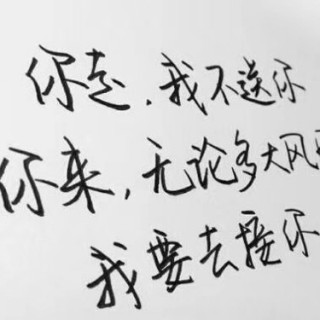 你走，我不送你
你来，无论多大风
我要去接你